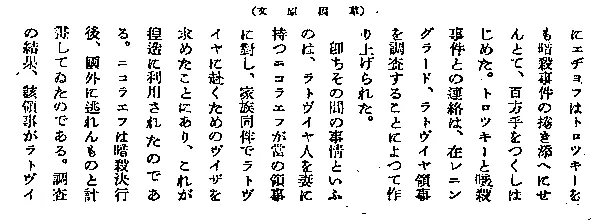 （草因原文）
にエヂョフはトロツキーを
も暗殺事件の捲き添へにせ
んとて、百方手をつくしは
じめた。トロツキーと暗殺
事件との連絡は、在レニン
グラード、ラトヴイヤ領事
を調査することによつて作
り上げられた。
即ちその間の事情といふ
のは、ラトヴイヤ人を妻に
持つニコラエフが當の領事
に對し、家族同伴でラトヴ
イヤに赴くためのヴイザを
求めたことにあり、これが
捏造に利用されたのであ
る。ニコラエフは暗殺決行
後、國外に逃れんものと計
畫してゐたのである。調査
の結果、該領事がラトヴイ